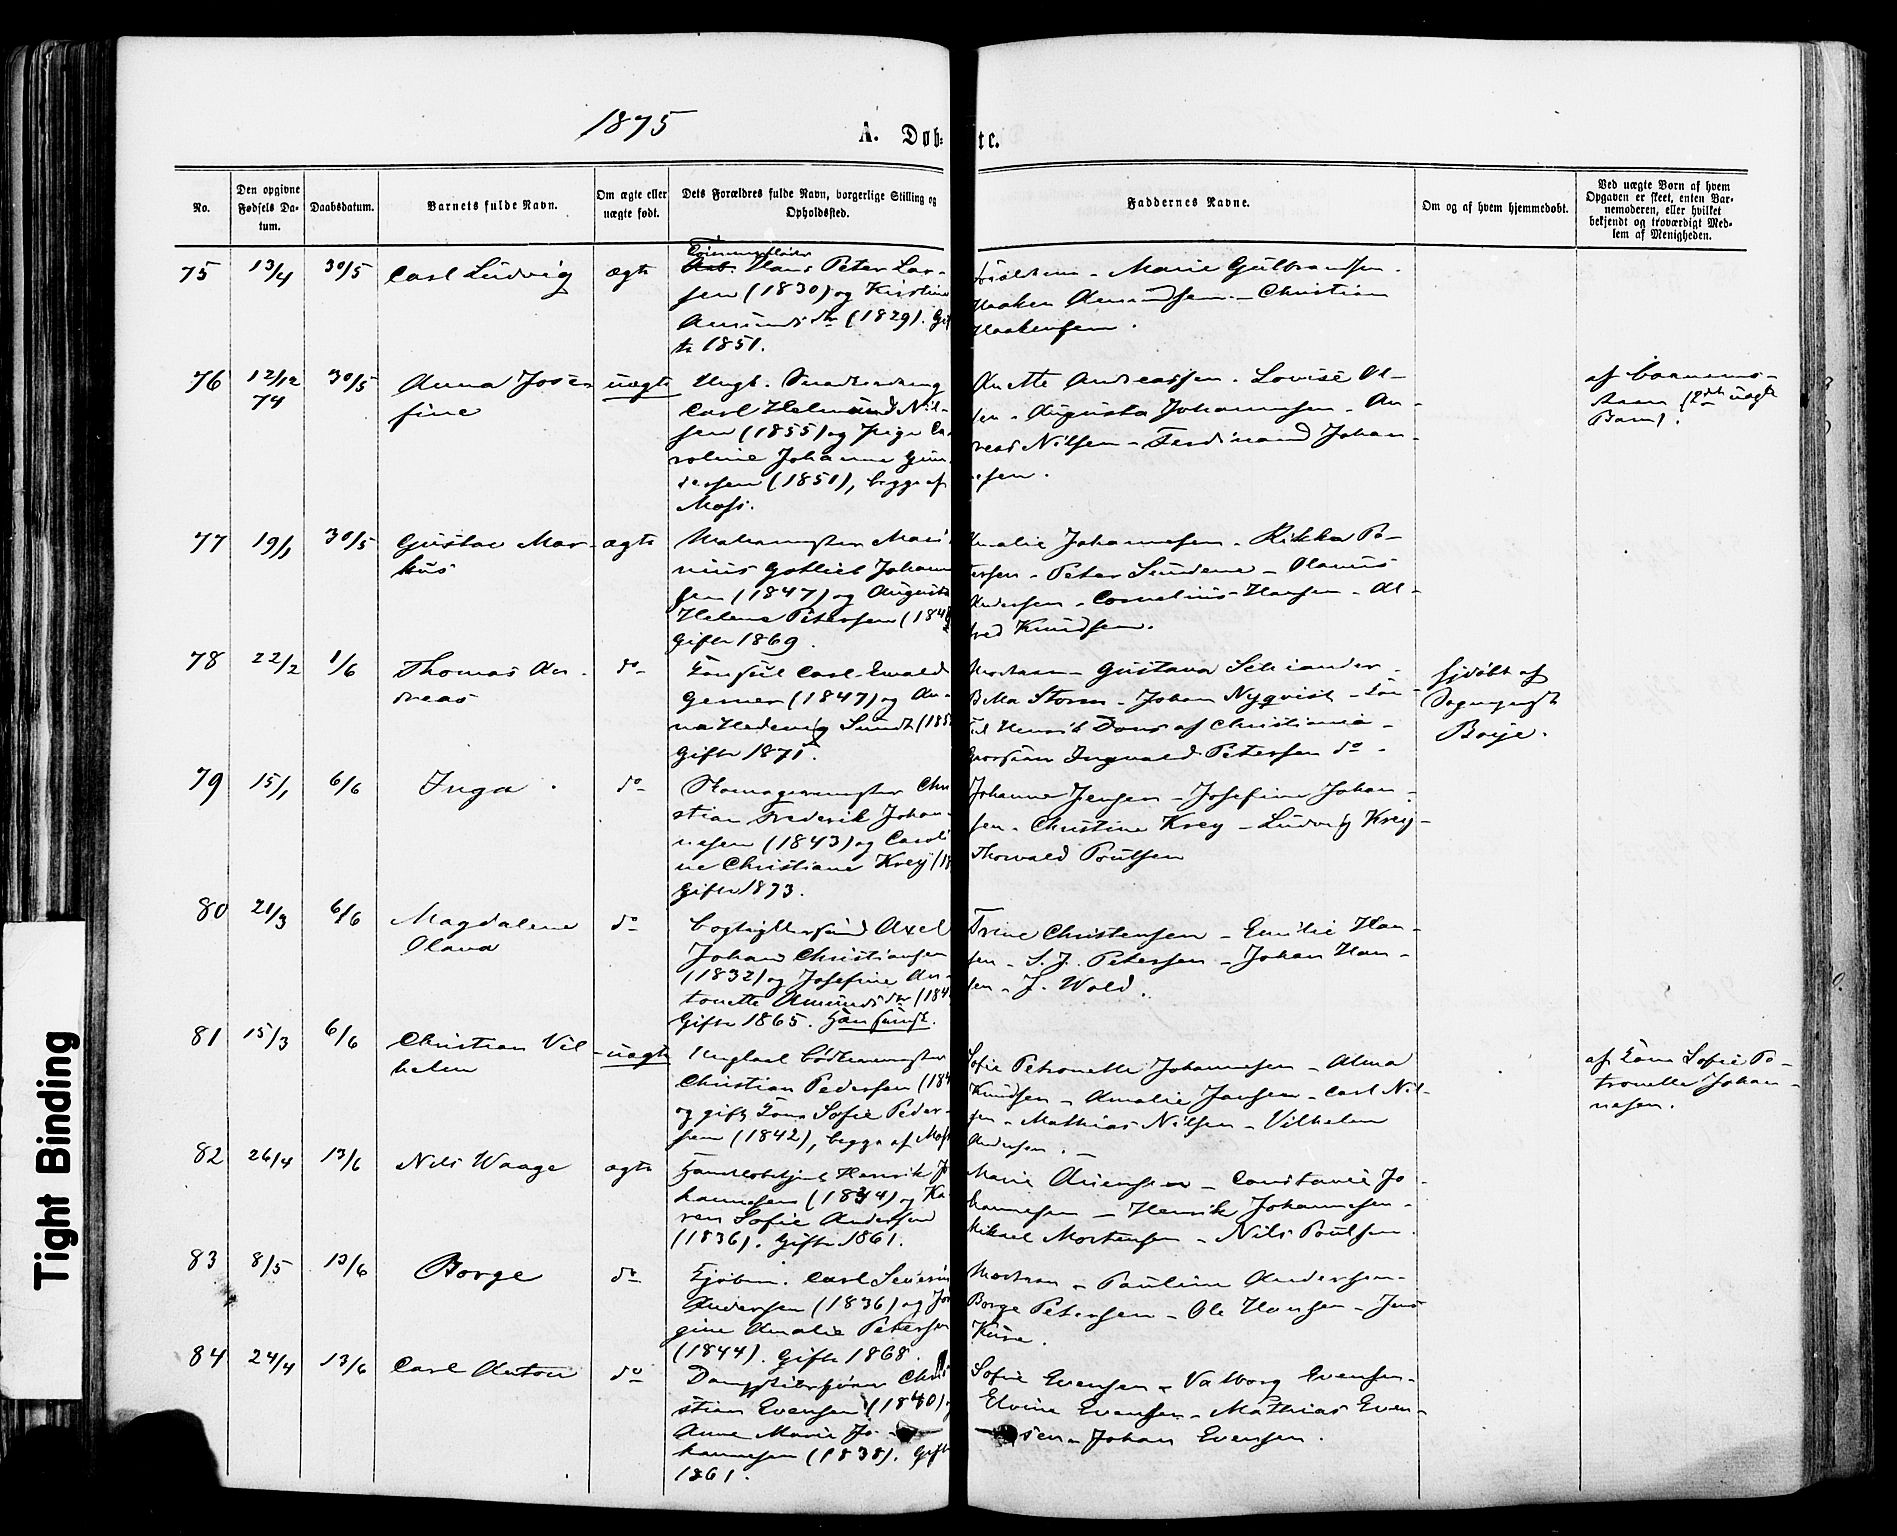 1875
A. Døb-
te.
No.
Den opgivne Fødsels Da-tum.
Daabsdatum.
Barnets fulde Navn.
Om ægte eller uægte født.
Dets Forældres fulde Navn, borgerlige Stilling og Opholdssted.
Faddernes Navne.
Om og af hvem hjemmedøbt.
Ved uægte Børn af hvem Opgaven er skeet, enten Bar-nemoderen, eller hvilket bekjendt og troværdigt Med-lem af Menigheden.
75 13/4 30/5 Carl Ludvig ægte
Hans Peter Lar-
sen (1830) og Kirstine
Amundsdtr (1829). Gif-
te 1851.
Marie Gulbrandsen -
Haaken Amundsen - Christian
Haakensen.
76 12/12 74 30/5 Anna Jose-
fine
uægte
Ungk.
Carl Helmund Nil-
sen (1855) og Pige Ca-
roline Johanne Gun-
dersen (1851), begge af
Moss.
Anette Andreassen - Lovise Ol-
sen - Augusta Johannesen - An-
reas Nilsen - Ferdinand Johan-
esen.
af Barnemo-
(2det uægte
Barn).
77 19/1 30/5 Gustav Mar-
kus
ægte
Malermester Mari-
nius Gotlieb Johanne
sen (1847) og Augusta
Helene Petersen (184
Gifte 1869.
Amalie Johannesen - Rikka Pe-
tersen - Peter Sundene - Olaves
Andersen - Cornelius Hansen - Al-
fred Knudsen.
78 22/2 1/6 Thomas An-
dreas
do
Konsul Carl Ewald
Gerner (1847) og An-
na Hedevig Sundt (185
Gifte 1871.
Modern - Gustava Schiander -
Storm - Johan Nyqvist - Kon-
sul Henrik Dons af Christiania -
Ingvald Petersen do -
hjdøbt af
Sogneprest
Boije.
79 15/1 6/6 Inga. do
Skomagermester Chri
stian Frederik Johan-
nesen (1843) og Caroli
ne Christiane Krey (18
Gifte 1873.
Johanne Jensen - Josefine Johan-
sen - Christine Krey - Ludvig Krey -
Thorvald Poulsen
80 21/3 6/6 Magdalene
Olava
do
Axel
Johan Christiansen
(1832) og Josefine An-
tonette Amundsdtr (184
Gifte 1865.
Trine Christensen - Emilie Han-
sen - S. J. Petersen - Johan Han-
sen - J. Wold.
81 15/3 6/6 Christian Vil-
helm
uægte
Ungkarl Bødkermester
Christian Pedersen (184
og gift Kone Sofie Peder-
sen (1842), begge af Moss
Sofie Petronelle Johannesen - Alma
Knudsen - Amalie Jansen - Carl Nil-
sen - Mathias Nilsen - Vilhelm
Andersen. -
af Kone Sofie Pe-
tronelle Johan-
nesen.
82 26/4 13/6 Nils Waage ægte
Handelsbetjent Henrik Jo
hannesen (1834) og Ka-
ren Sofie Andersen
(1836). Gifte 1861.
Marie Arensen - Constance Jo-
hannesen - Henrik Johannesen -
Mikael Mortensen - Nils Poulsen.
83 8/5 13/6 Borge do
Kjøbm. Carl Severin
Andersen (1836) og Jor
gine Amalie Petersen
(1844). Gifte 1868.
Modern - Pauline Andersen -
Borge Petersen - Ole Hansen - Jens
Kure.
84 24/4 13/6 Carl Anton do
Dampskibsfører Chri
stian Evensen (1840) og
Anne Marie Jo-
hannesen (1838). Gifte
1861.
Sofie Evensen - Valborg Evensen -
Elvine Evensen - Mathias Even-
sen - Johan Evensen.
Tight Binding